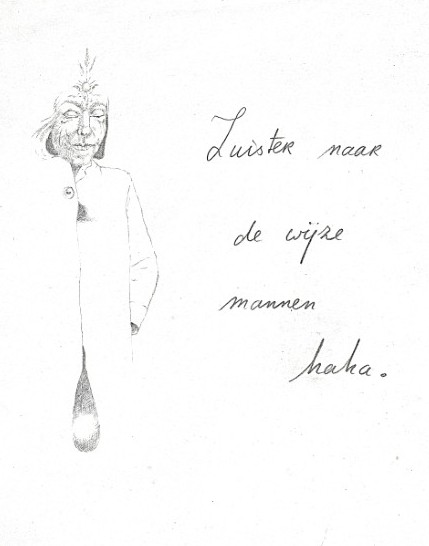 Luister naar
de wijze
mannen
haha.